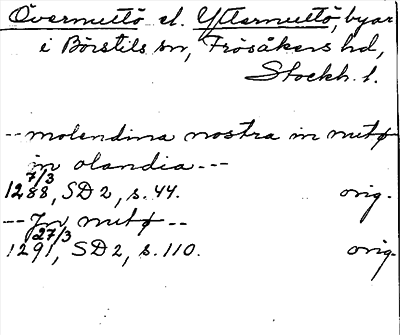 Övermuttö el. Yttermuttö, byar
i Börstils sn, Frösåkers hd,
Stockh. l.
-- molendina nostra in mutø
in olandia ---
7/3
1288, SD 2, s. 44. orig.
-- Jn mutø --
27/3
1291, SD 2, s. 110. orig.